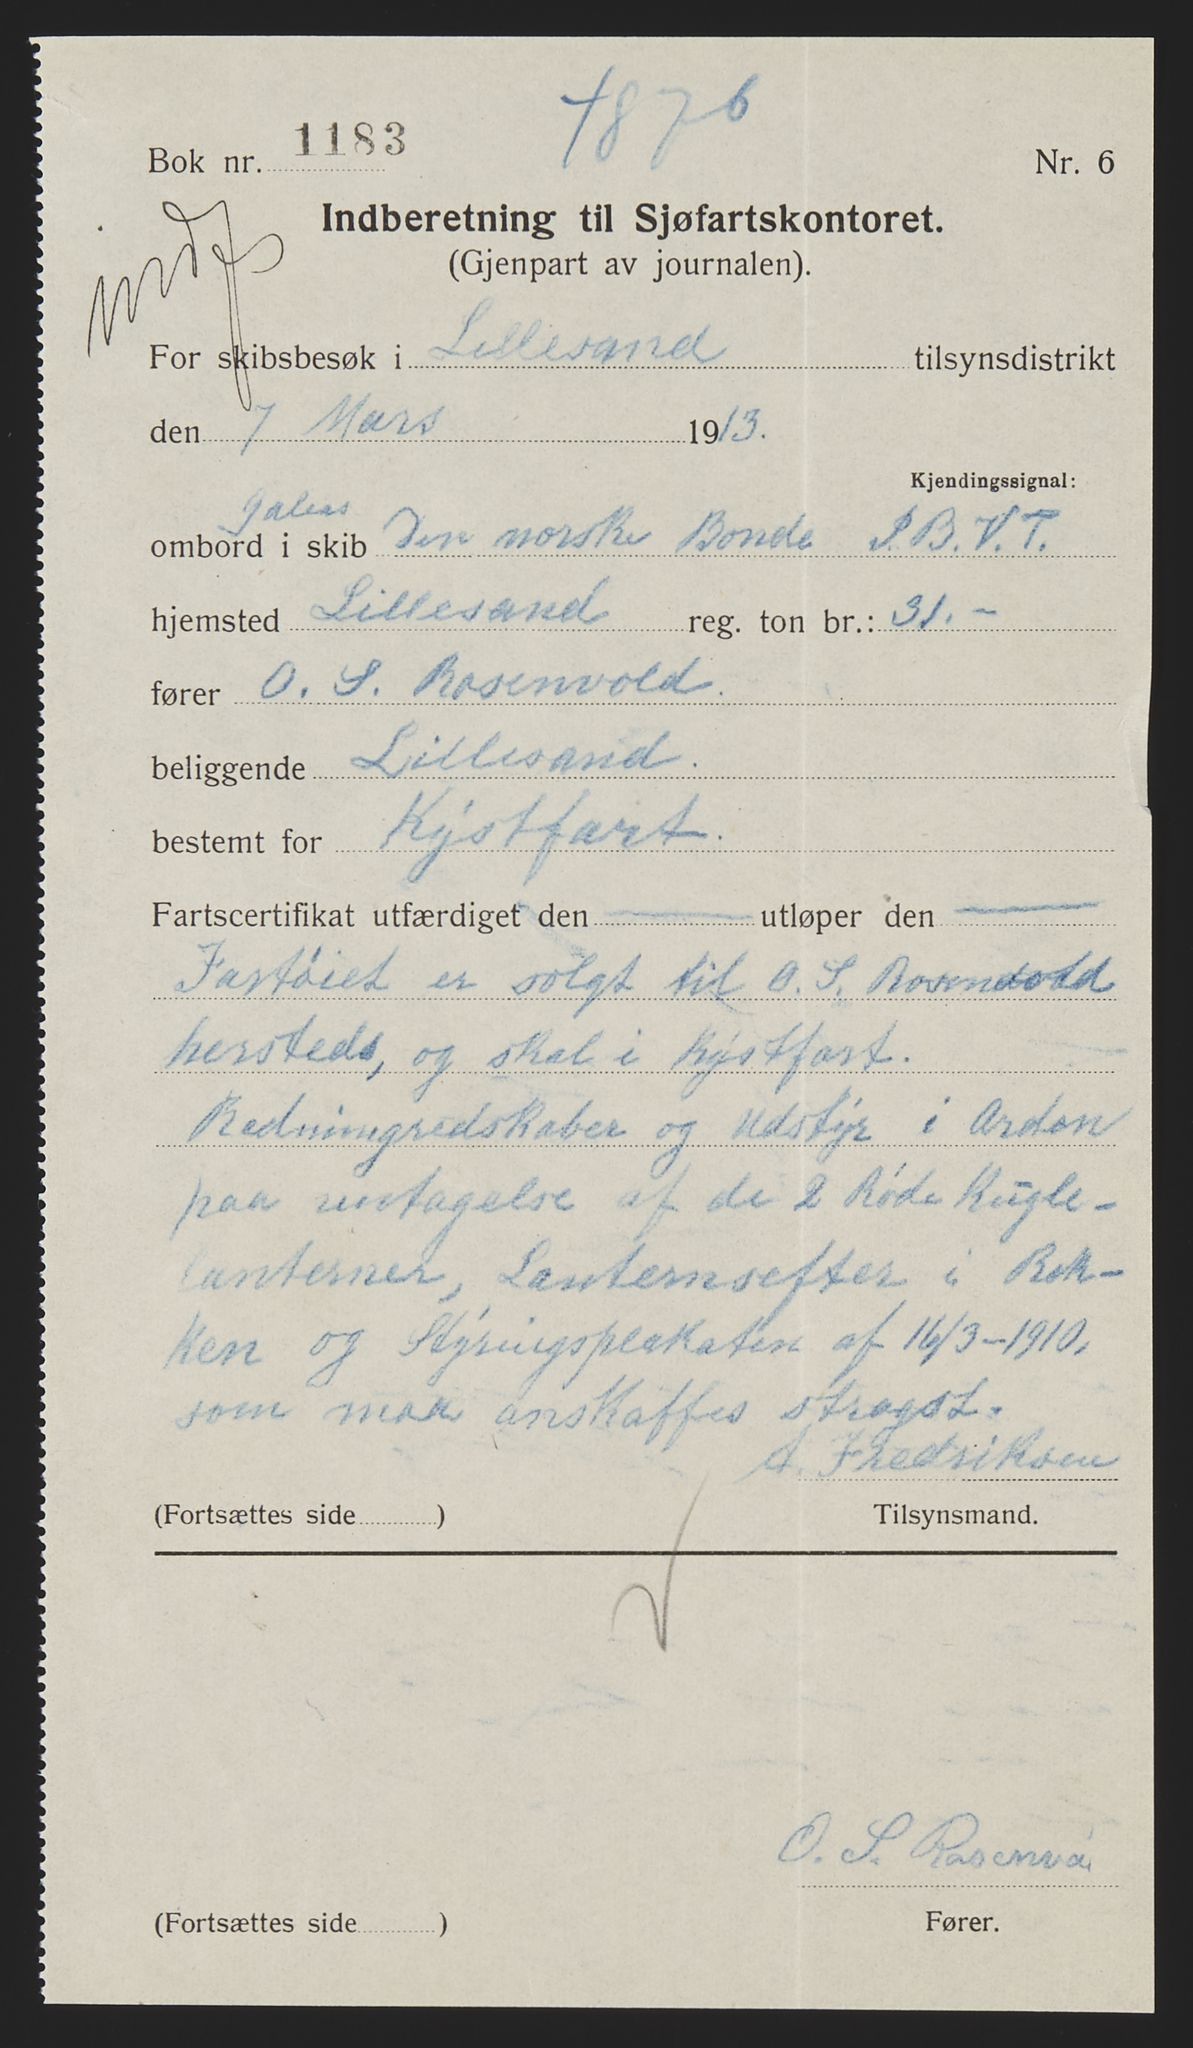 1876
Bok nr. 1183
Nr. 6
Indberetning til Sjøfartskontoret.
(Gjenpart av journalen).
For skibsbesøk i Lillesand tilsynsdistrikt
den 7 Mars 1913.
Kjendingssignal:
Galeas
ombord i skib Den norske Bonde I.B.V.T.
hjemsted Lillesand reg. ton br.: 31.-
fører O. S. Rosenvold.
beliggende Lillesand.
bestemt for Kystfart.
Fartscertifikat utfærdiget den — utløper den —
Fartöiet er solgt til O. S. Rosenvold
hersteds, og skal i Kystfart.
Redningredskaber og Udstyr i Orden
paa untagelse af de 2 Röde Kugle-
lanterner, Lanternsefter i Rek-
ken og Styringsplakaten af 16/3-1910,
som maa anskaffes stragst.
A. Fredriksen
(Fortsættes side )
Tilsynsmand.
O. S. Rosenvo
(Fortsættes side )
Fører.